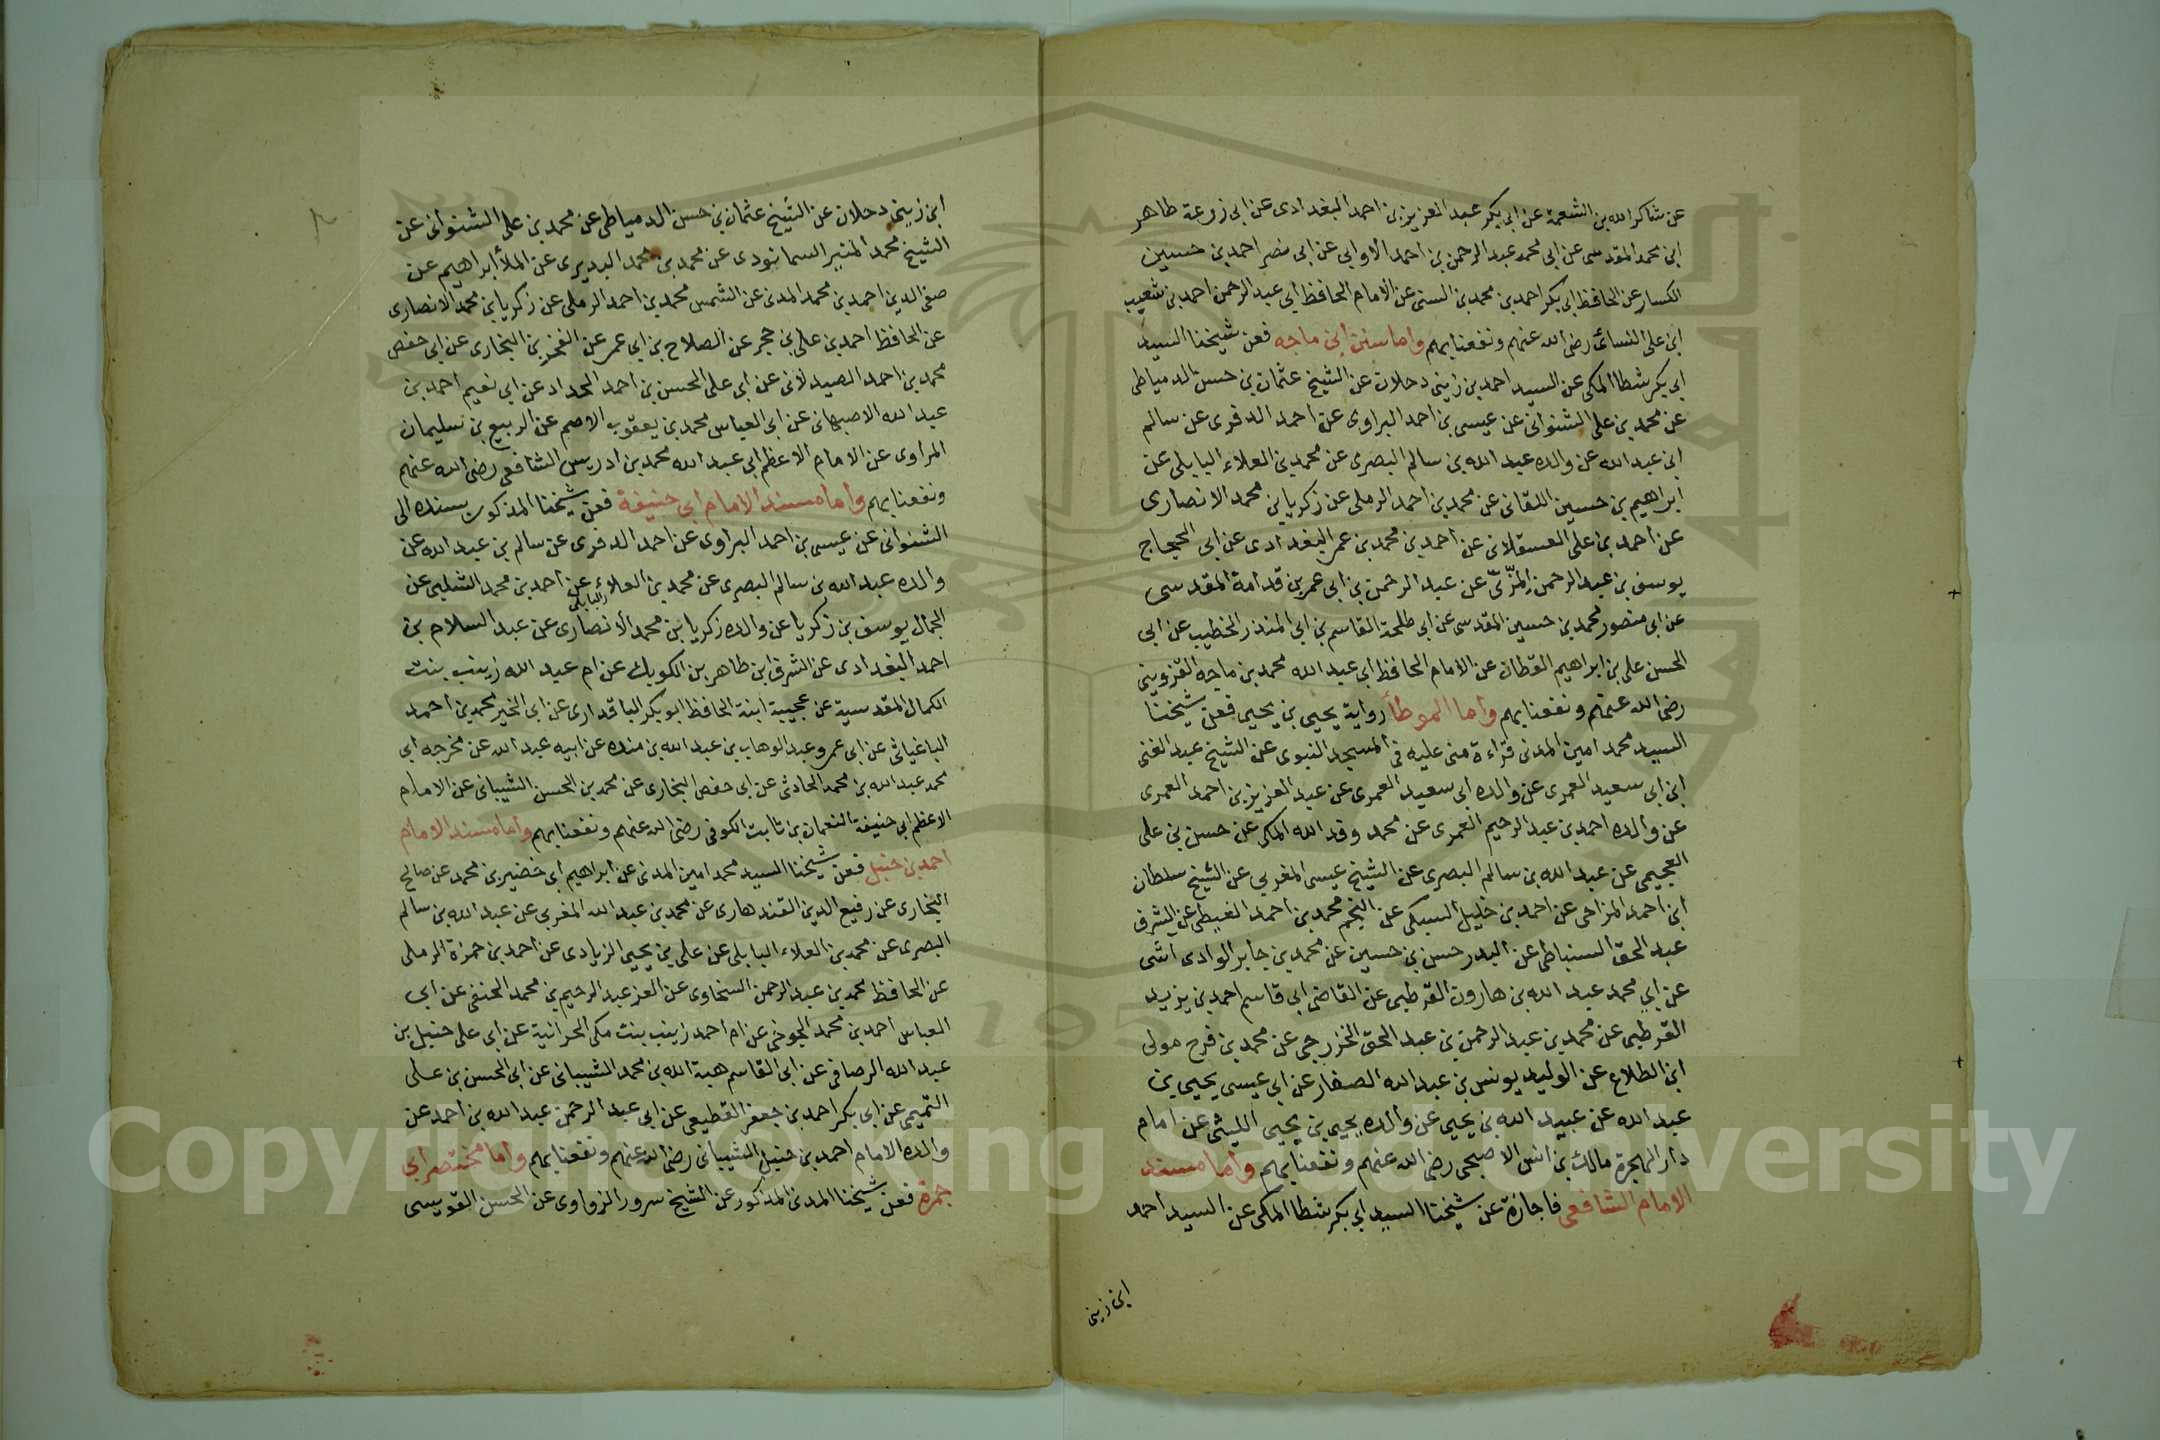 عن شاكر الله بن الشعمة عن ابي بكر عبد العزيز بن احمد البغدادى عن ابي زرعة طاهر
ابن محمد المقدسى عن ابي محمد عبد الرحمن بن احمد الاوابي عن ابي نصر احمد بن حسين
الكسار عن الحافظ ابي بكر احمد بن محمد بن السنى عن الامام الحافظ ابي عبد الرحمن احمد بن شعيب
ابن على النسائى رضى الله عنهم ونفعنا بهم واما سنن ابن ماجه فعن شيخنا السيد
ابي بكر شطا المكى عن السيد احمد بن زينى دحلان عن الشيخ عثمان بن حسن الدمياطى
عن محمد بن على الشنوانى عن عيسى بن احمد البراوى عن احمد الدفرى عن سالم
ابن عبد الله عن والده عبد الله بن سالم البصرى عن محمد بن العلاء البابلى عن
ابراهيم بن حسين اللقانى عن محمد بن احمد الرملى عن زكريا بن محمد الانصارى
عن احمد بن على العسقلانى عن احمد بن محمد بن عمر البغدادى عن ابي الحجاج
يوسف بن عبد الرحمن المزّىّ عن عبد الرحمن بن ابي عمر بن قدامة المقدسى
عن ابي منصور محمد بن حسين المقدسى عن ابي طلحة القاسم بن ابي المنذر الخطيب عن ابي
الحسن على بن ابراهيم القطان عن الامام الحافظ ابي عبد الله محمد بن ماجه القزوينى
رضى الله عنهم ونفعنا بهم واما الموطأ رواية يحيى بن يحيى فعن شيخنا
السيد محمد امين المدنى قراءة منى عليه فى المسجد النبوى عن الشيخ عبد الغنى
ابن ابي سعيد العمرى عن والده ابي سعيد العمرى عن عبد العزيز بن احمد العمرى
عن والده احمد بن عبد الرحيم العمرى عن محمد وفد الله المكى عن حسن بن على
العجيمى عن عبد الله بن سالم البصرى عن الشيخ عيسى المغربي عن الشيخ سلطان
ابن احمد المزاحى عن احمد بن خليل السبكى عن النجم محمد بن احمد الغيطى عن الشرف
عبد الحق السنباطى عن البدر حسن بن حسين عن محمد بن جابر الوادى آشى
عن ابي محمد عبد الله بن هارون القرطبى عن القاضى ابي قاسم احمد بن يزيد
القرطبى عن محمد بن عبد الرحمن بن عبد الحق الخزرجى عن محمد بن فرح مولى
ابن الطلاع عن الوليد يونس بن عبد الله الصفار عن ابي عيسى يحيى بن
عبد الله عن عبيد الله بن يحيى عن والده يحيى بن يحيى الليثى عن امام
دار الهجرة مالك بن انس الاصبحى رضى الله عنهم ونفعنا بهم واما مسند
الامام الشافعى فاجازة عن شيخنا السيد ابي بكر شطا المكى عن السيد احمد
ابن زينى
ابن زينى دحلان عن الشيخ عثمان بن حسن الدمياطى عن محمد بن على الشنوانى عن
الشيخ محمد المنير السمانودى عن محمد بن محمد البديرى عن الملا ابراهيم عن
صفى الدين احمد بن محمد المدنى عن الشمس محمد بن احمد الرملى عن زكريا بن محمد الانصارى
عن الحافظ احمد بن على بن حجر عن الصلاح بن ابي عمر عن الفخر بن البخارى عن ابي حفص
محمد بن احمد الصيدلانى عن ابي على الحسن بن احمد الحداد عن ابي نعيم احمد بن
عبد الله الاصبهانى عن ابي العباس محمد بن يعقوب الاصم عن الربيع بن سليمان
المراوى عن الامام الاعظم ابي عبد الله محمد بن ادريس الشافعى رضى الله عنهم
ونفعنا بهم واما مسند الامام ابي حنيفة فعن شيخنا المذكور بسنده الى
الشنوانى عن عيسى بن احمد البراوى عن احمد الدفرى عن سالم بن عبد الله عن
والده عبد الله بن سالم البصرى عن محمد بن العلاء البابلى عن احمد بن محمد الشلبى عن
الجمال يوسف بن زكريا عن والده زكريا بن محمد الانصارى عن عبد السلام بن
احمد البغدادى عن الشرف ابن طاهر بن الكويك عن ام عبد الله زينب بنت
الكمال المقدسية عن عجيبة ابنة الحافظ ابو بكر الباقدارى عن ابي الخير محمد بن احمد
الباغيانى عن ابي عمرو عبد الوهاب بن عبد الله بن منده عن ابيه عبد الله عن مخرجه ابي
محمد عبد الله بن محمد الحادثى عن ابي حفص البخارى عن محمد بن الحسن الشيبانى عن الامام
الاعظم ابي حنيفة النعمان بن ثابت الكوفى رضى الله عنهم ونفعنا بهم واما مسند الامام
احمد بن حنبل فعن شيخنا السيد محمد امين المدنى عن ابراهيم ابي خضير بن محمد عن صالح
البخارى عن رفيع الدين القندهارى عن محمد بن عبد الله المغربي عن عبد الله بن سالم
البصرى عن محمد بن العلاء البابلى عن على بن يحيى الزيادى عن احمد بن حمزة الرملى
عن الحافظ محمد بن عبد الرحمن السخاوى عن العز عبد الرحيم بن محمد الحنفى عن ابي
العباس احمد بن محمد الجوخى عن ام احمد زينب بنت مكى الحرانية عن ابي على حنبل بن
عبد الله الرصافى عن ابي القاسم هبة الله بن محمد الشيبانى عن ابي الحسن بن على
التميمى عن ابي بكر احمد بن جعفر القطيعى عن ابي عبد الرحمن عبد الله بن احمد عن
والده الامام احمد بن حنبل الشيبانى رضى الله عنهم ونفعنا بهم واما مختصر ابي
جمرة فعن شيخنا المدنى المذكور عن الشيخ سرور الزواوى عن الحسن القويسى
Copyright © King Saud University